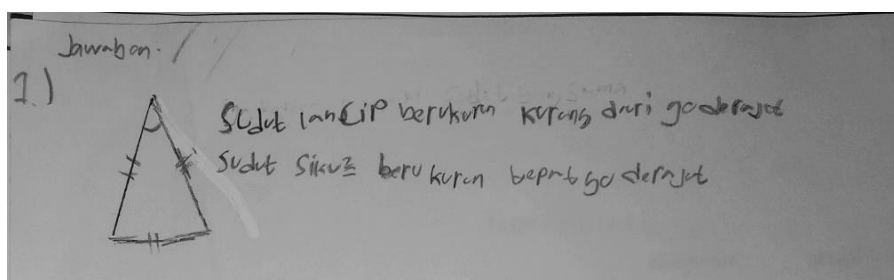 Jawaban.
1.)
Sudut lancip berukuran kurang dari 90 derajat
Sudut Siku2 berukuran tepat 90 derajat